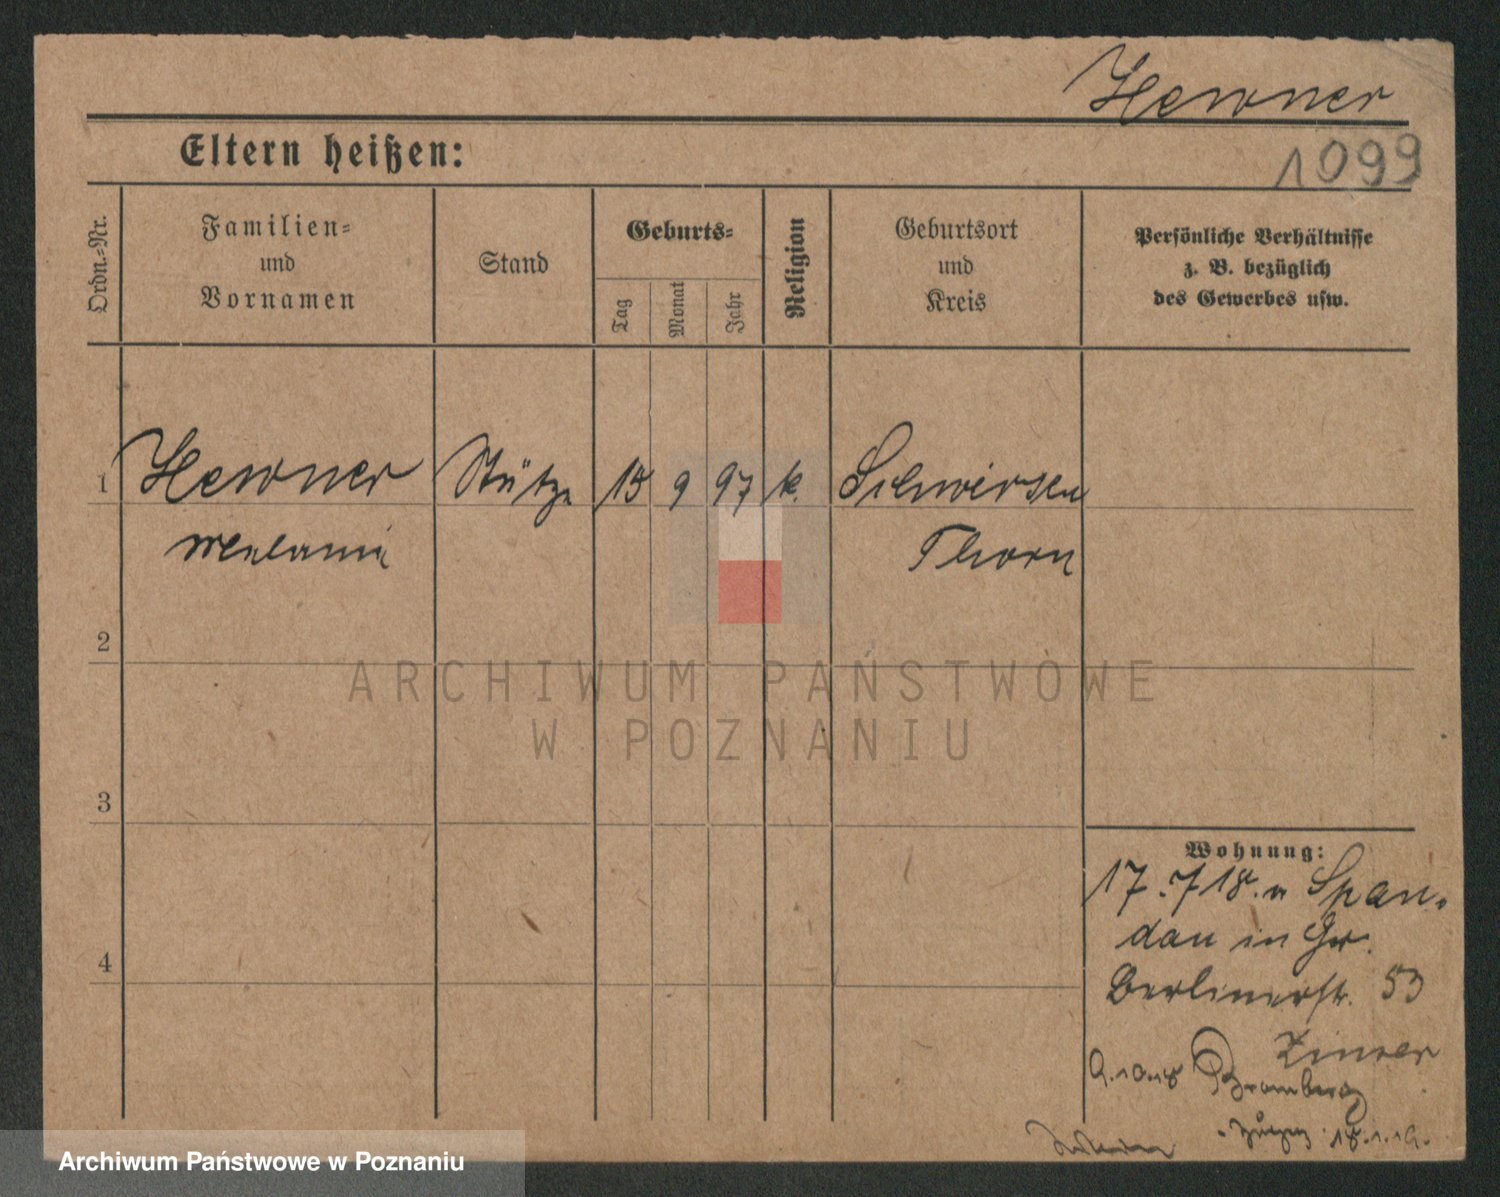 Hewner
1099
Eltern heißen:
Ordn.-Nr.
Familien-
und
Vornamen
Stand
Geburts-
Tag
Monat
Jahr
Religion
Geburtsort
und
Kreis
Persönliche Verhältnisse
z. B. bezüglich
des Gewerbes usw.
1 Hewner Stütze 15 9 97 k. Schwirsen
Thorn
2
3
4
ARCHIWUM PAŃSTWOWE
W POZNANIU
Wohnung:
17.718. n Span-
dau in Gr.
Berlinerstr. 53
Zinser
9.10.18 Bromberg
18.1.19.
Archiwum Państwowe w Poznaniu